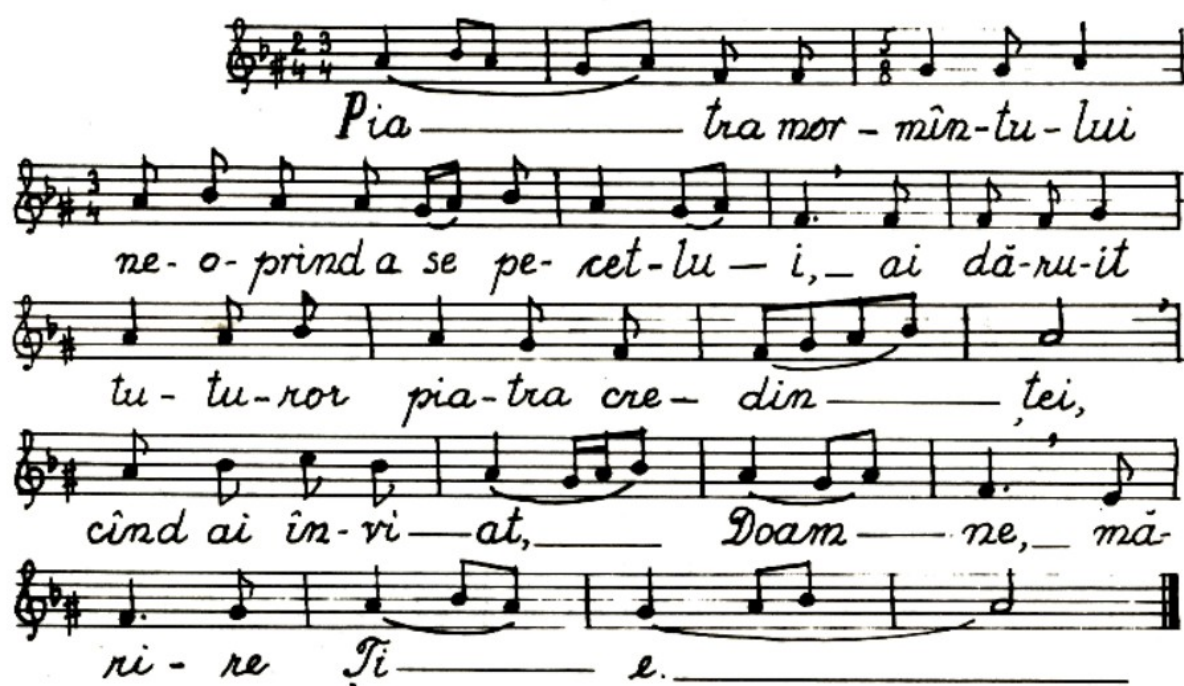 2 3 5
4 4 8
Pia — tra mor – mîn-tu-lui
3
4
ne-o-prind a se pe-cet-lu — i, _ ai dă-ru-it
tu-tu-ror pia-tra cre – din — ței,
cînd ai în-vi — at, _ Doam — ne, _ mă-
ri-re Ți — e. _